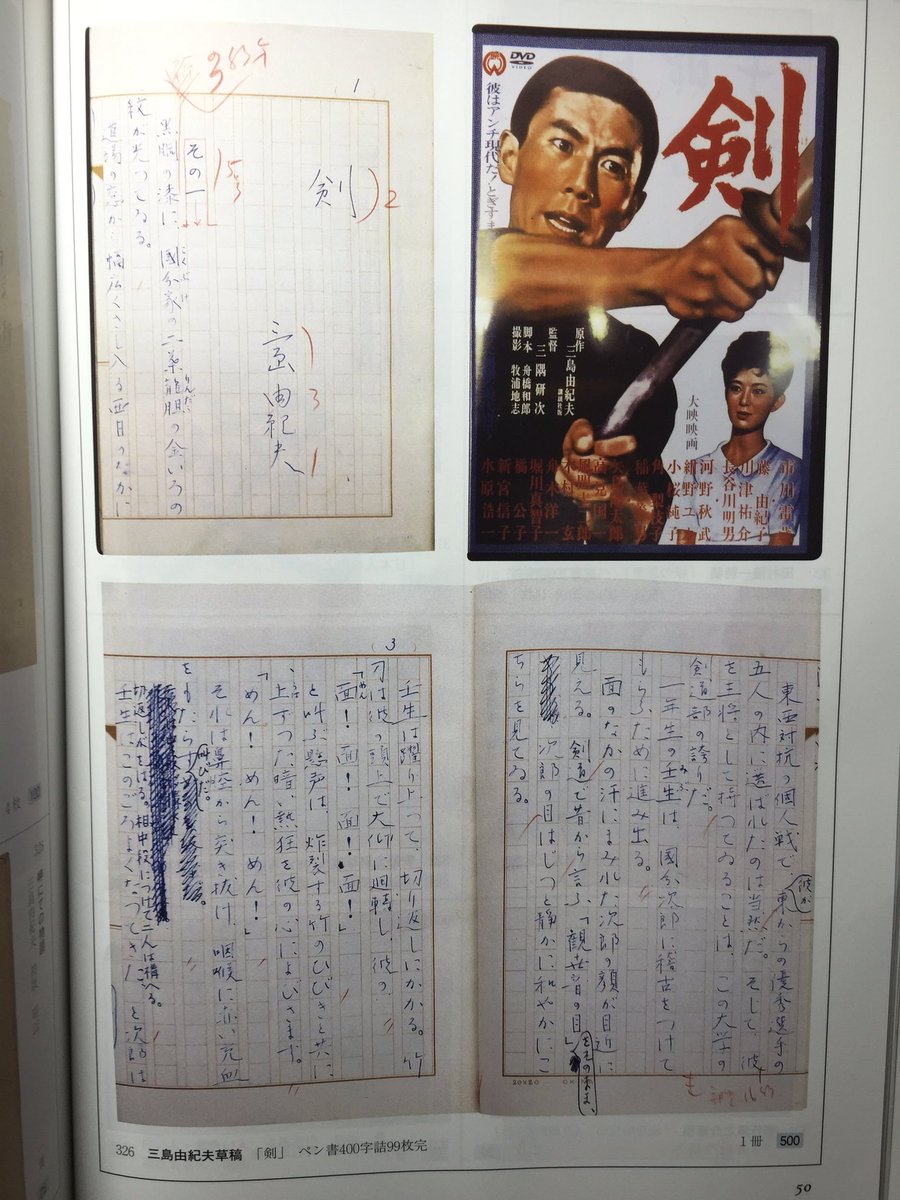 1
剣
2
三島由紀夫
1
3
1
その一
153
黒胴の漆に、国分家の二葉龍胆の金いろの
紋が光つてゐる。
道場の窓から幅広くさし入る西日のなかに
DVD
VIDEO
剣
彼はアンチ現代だ!とぎすま
原作 三島由紀夫
講談社版
監督 三隅研次
脚本 舟橋和郎
撮影 牧浦地志
大映映画
市川雷蔵
藤由紀子
川津祐介
長谷川明男
河野秋武
新野ユ
小桜純子
角梨枝子
稲葉義男
風間圭二郎
木村玄
舟木洋一
堀川真智子
橘公子
新宮信子
水原浩一
東西対抗の個人戦で、東からの優秀選手の
五人の内に選ばれたのは当然だ。そして、彼
を主将として持つてゐることは、この大学の
剣道部の誇りだ。
一年生の壬生は、国分次郎に稽古をつけて
もらふために進み出る。
面のなかの汗にまみれた次郎の顔が目近に
見える。剣道で昔から言ふ「観世音の目」
そのまま、
次郎の目はじつと静かに和やかにこ
ちらを見てゐる。
彼が
20×20
3
壬生は躍り上つて、切り返しにかかる。竹
刀は彼の頭上で大仰に廻転し、彼の、
「面!面!面!面!」
と叫ぶ懸声は、炸裂する竹のひびきと共に
、上ずつた暗い熱狂を彼の心によびさます。
「めん!めん!めん!」
それは鼻空から突き抜け、咽喉に赤い充血
をもたらす
叫びだ。
切返しがをはる。相中段につけて二人は構へる。
『壬生はこのごろよくなつてきた』と次郎は
326 三島由紀夫草稿 「剣」 ペン書400字詰99枚完
1冊 500
50